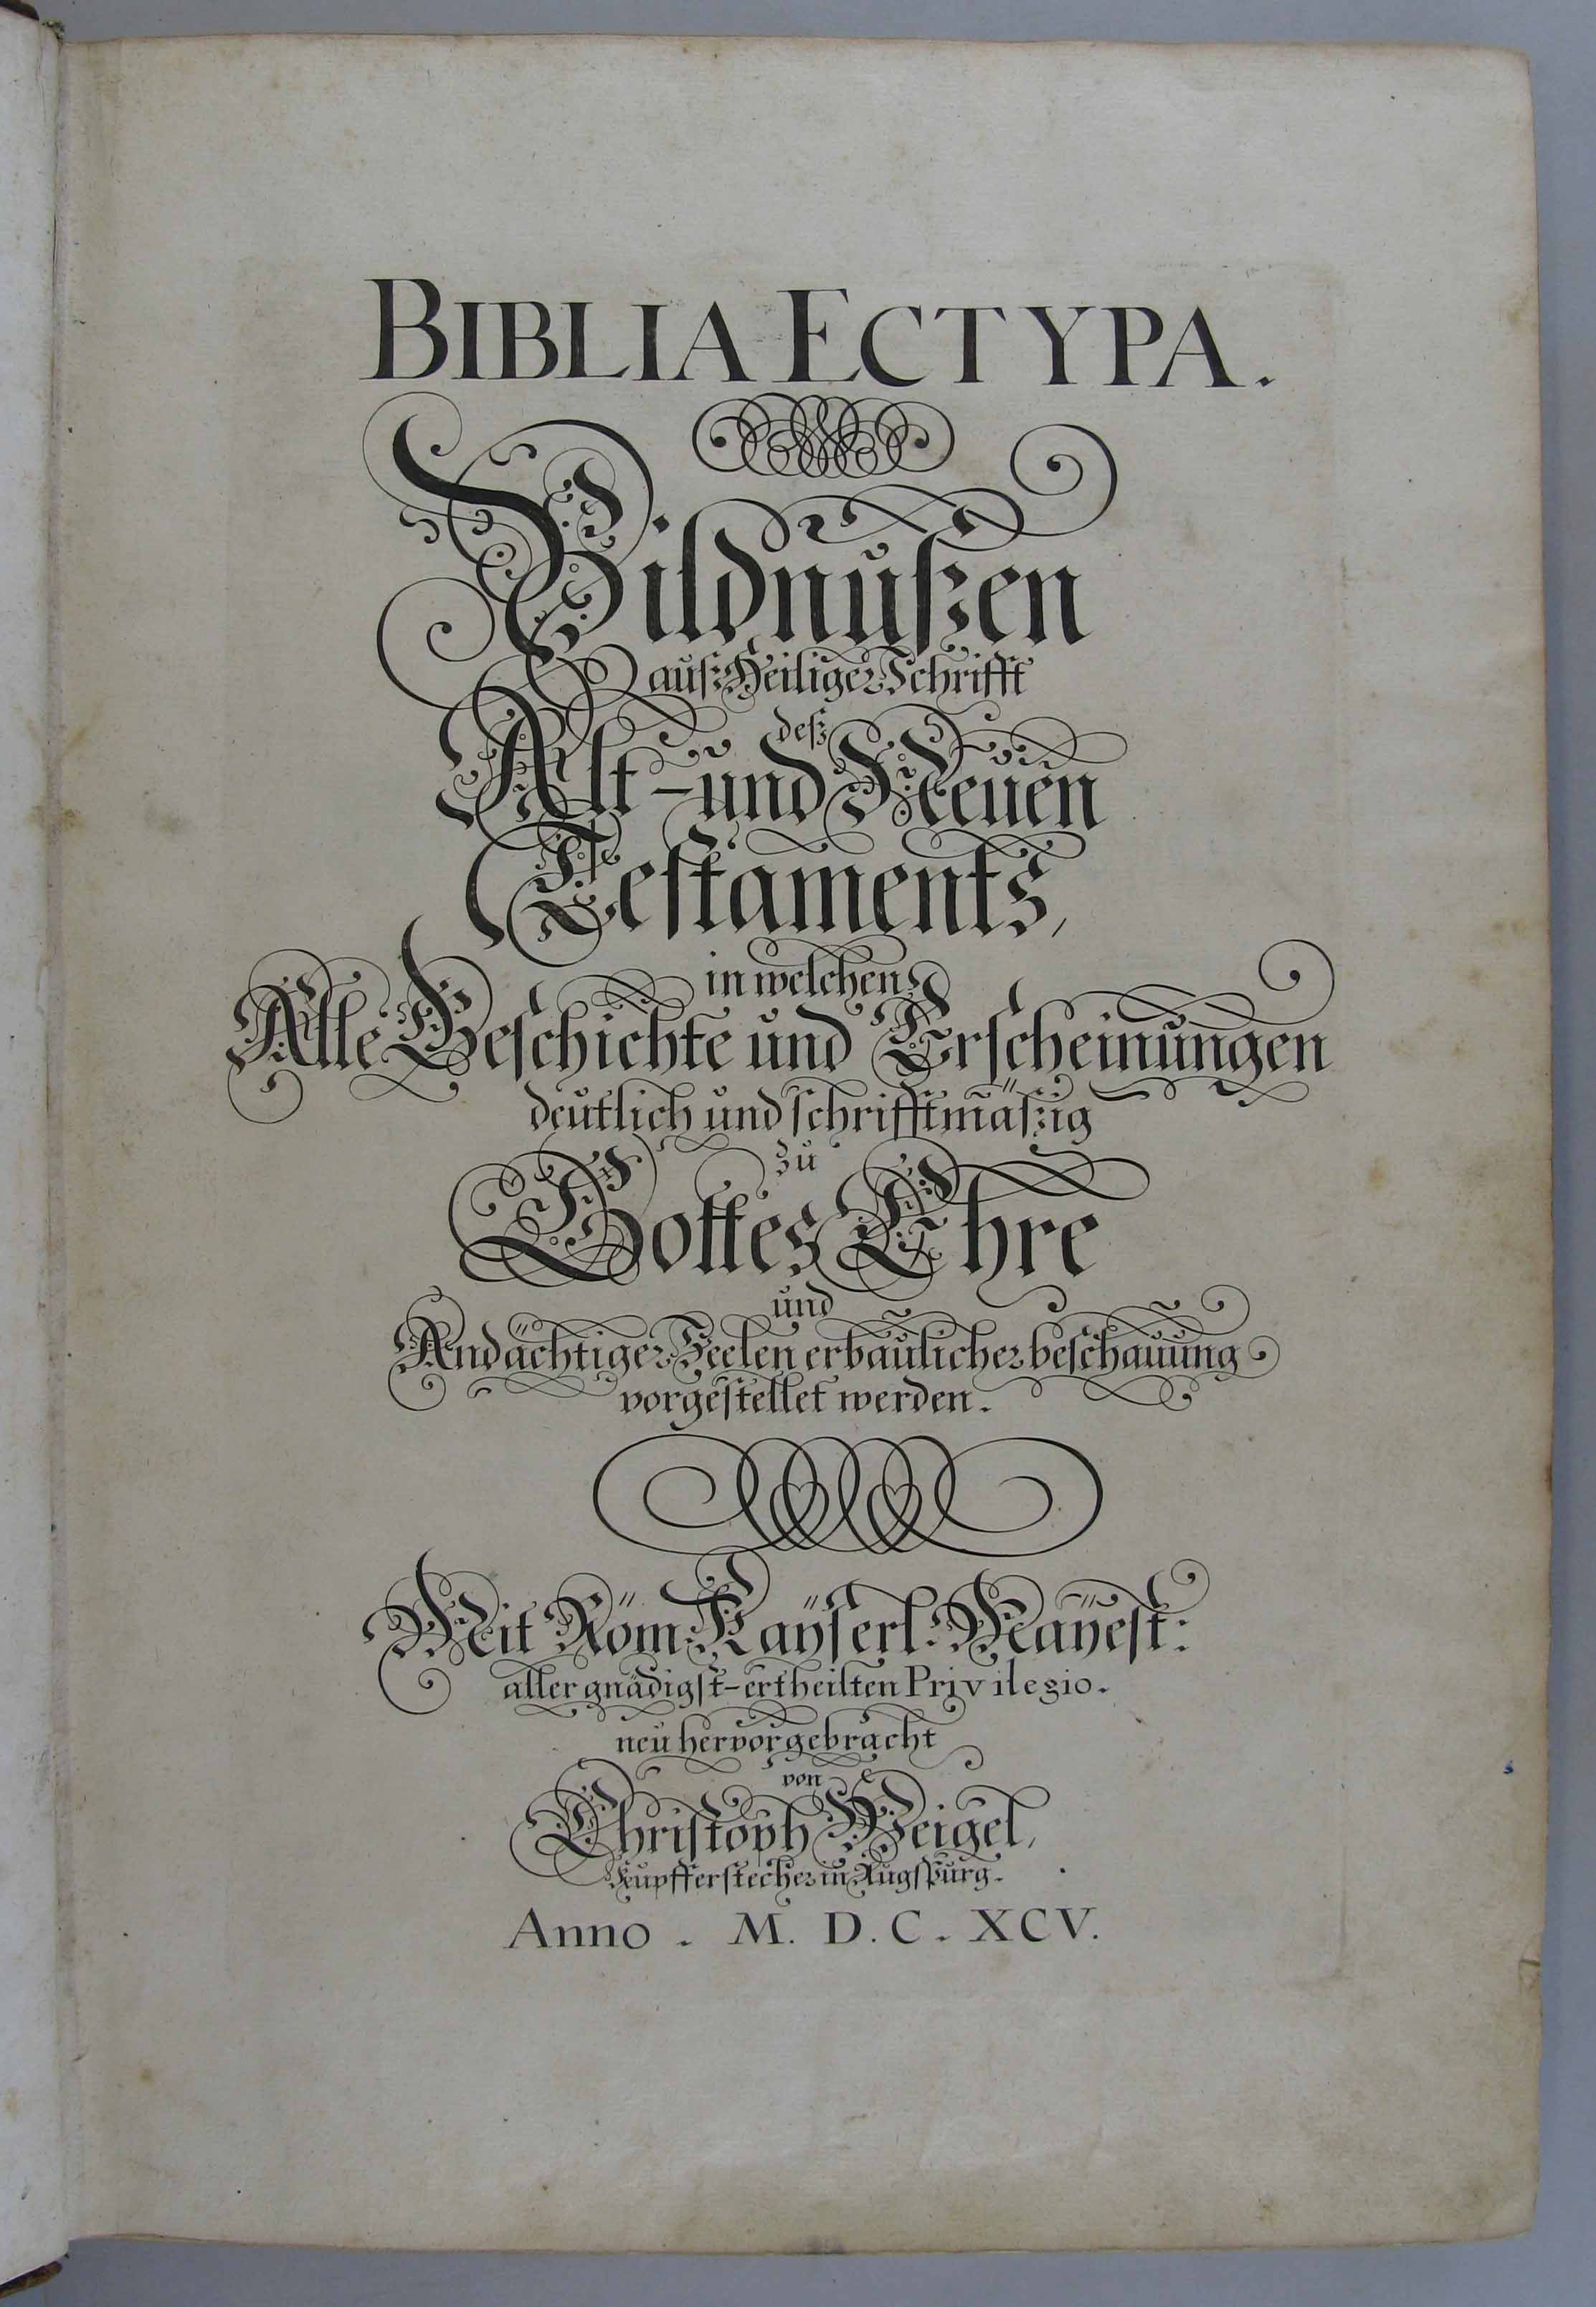 BIBLIA ECTYPA.
Bildnußen
auß Heiliger Schrifft
deß
Alt- und Neuen
Testaments,
in welchen
Alle Geschichte und Erscheinungen
deutlich und schrifftmäßig
zu
Gottes Ehre
und
Andächtiger Seelen erbaulicher beschauung
vorgestellet werden.
Mit Röm. Kaÿserl: Maÿest:
aller gnädigst-ertheilten Privilegio.
neu hervorgebracht
von
Christoph Weigel,
Kupfferstecher in Augspurg.
Anno . M. D. C. XCV.